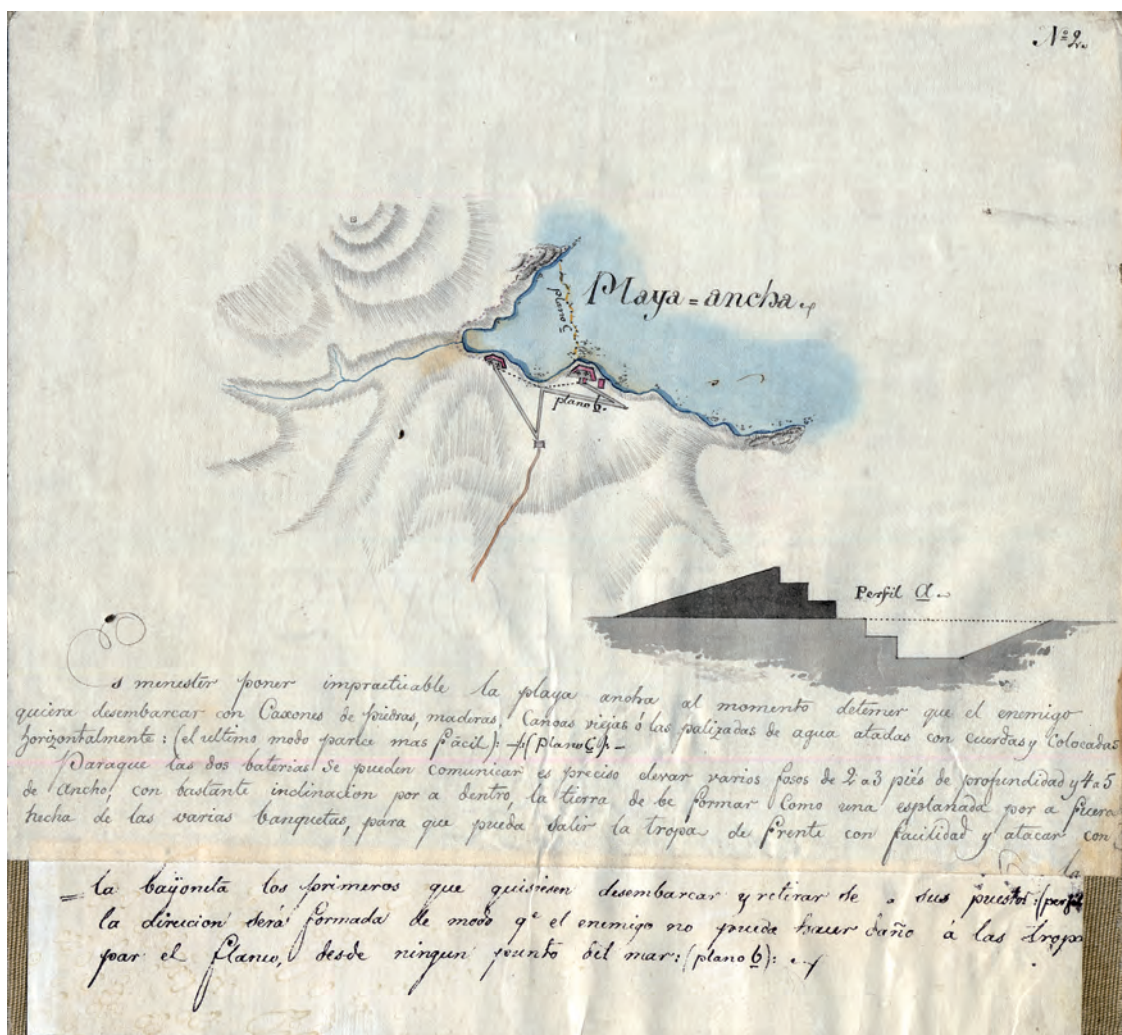 Nº 2.
Playa = ancha.
plano C
plano b.
Perfil a.
Es menester poner impracticable la playa ancha al momento detemer que el enemigo
quiera desembarcar con Caxones de piedras, maderas, Canoas viejas ó las palizadas de agua atadas con cuerdas y Colocadas
horizontalmente: (el ultimo modo parece mas fácil): (plano C):
Paraque las dos baterias se pueden comunicar es preciso elevar varios fosos de 2 a 3 piés de profundidad y 4 a 5
de Ancho, con bastante inclinacion por a dentro, la tierra de be formar Como una esplanada por a fuera
hecha de las varias banquetas, para que pueda salir la tropa de frente con facilidad y atacar con
la
= la bayoneta los primeros que quisiesen desembarcar y retirar se a sus puestos: (perfil
la direcion será formada de modo qe el enemigo no puede hacer daño á las trop
par el flanco, desde ningun punto del mar: (plano b):